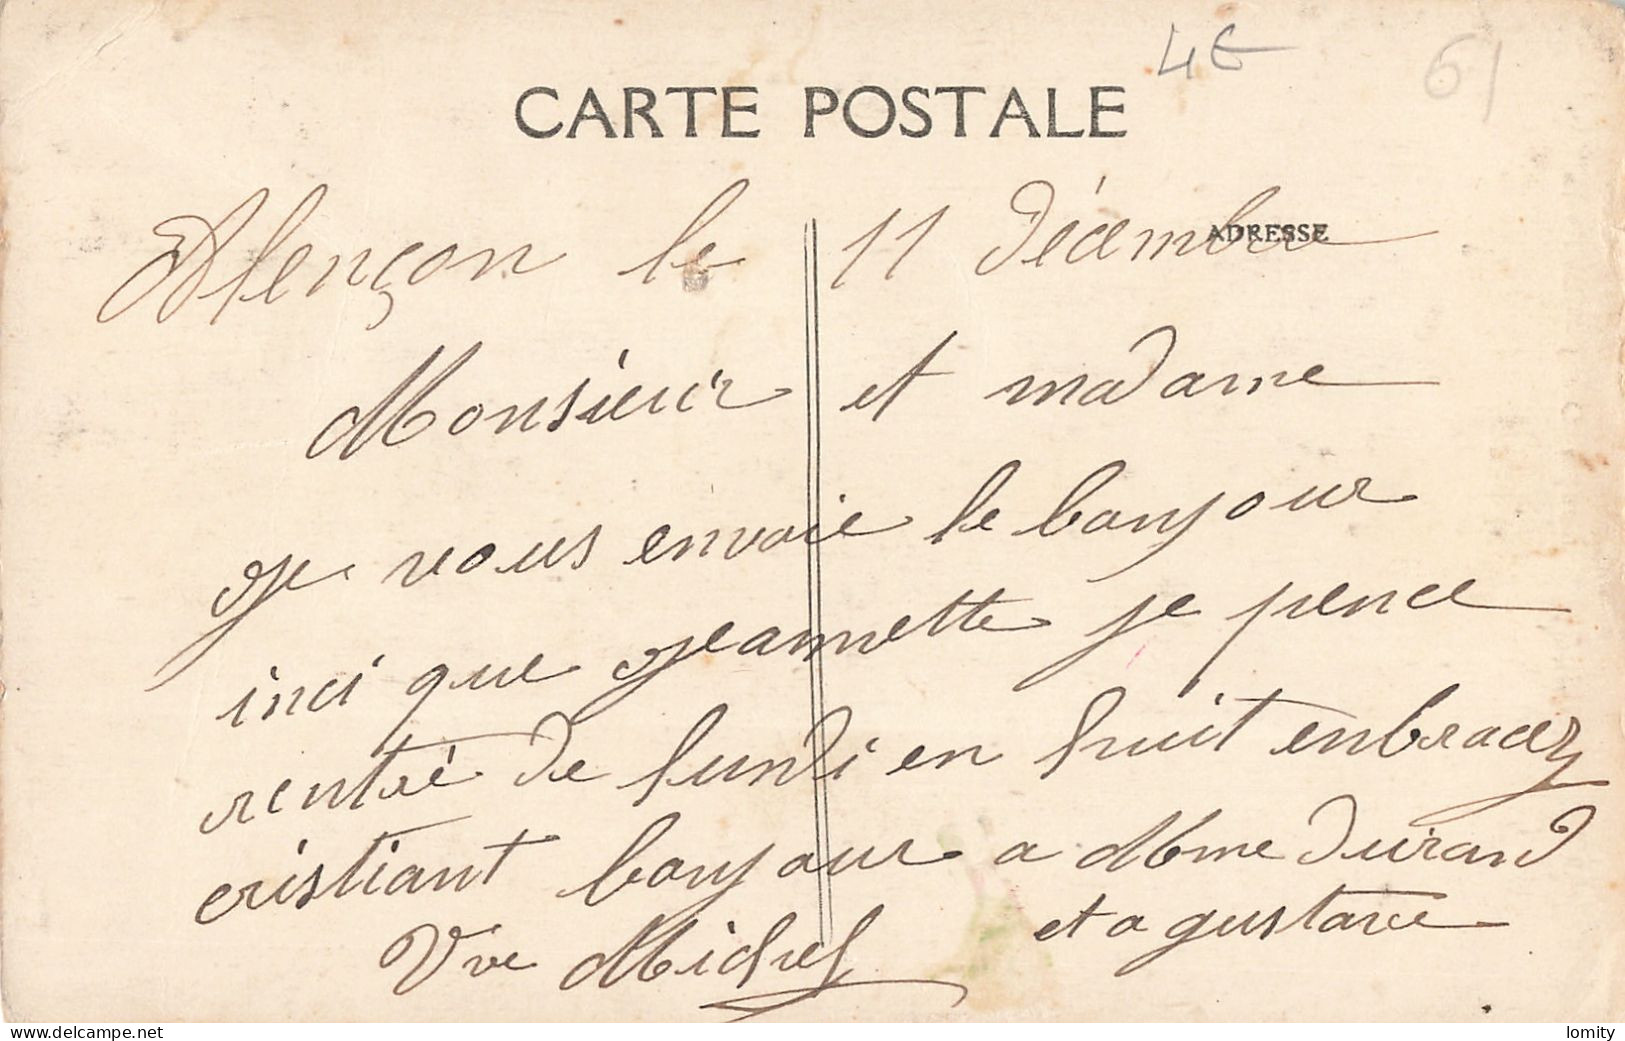 4€ 61
CARTE POSTALE
ADRESSE
Alençon le 11 décembre
Monsieur et madame
Je vous envoie le bonjour
inci que Jeannette je pence
rentré de lundi en huit enbracez
cristiant bonjour a Mme durand
et a gustave
Vve Michel
delcampe.net
lomity